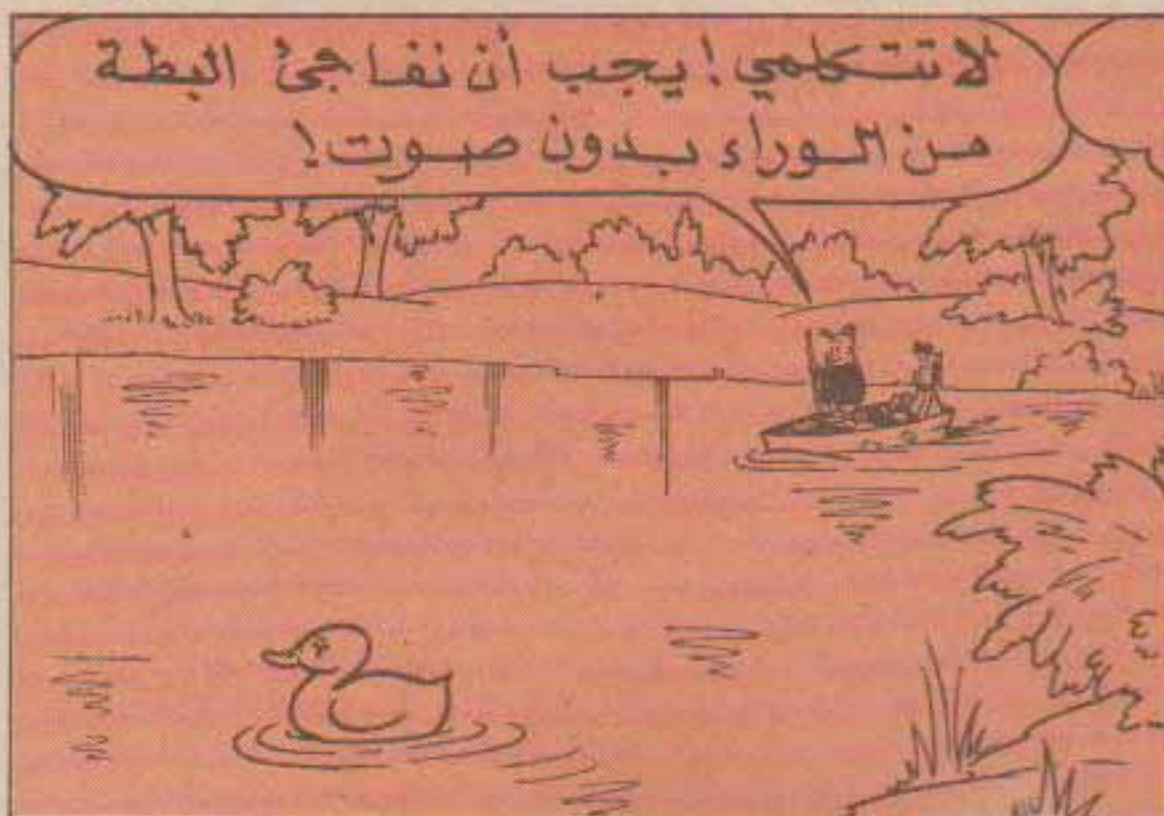 لا تتكلمي! يجب أن نفاجئ البطة
من الوراء بدون صوت!